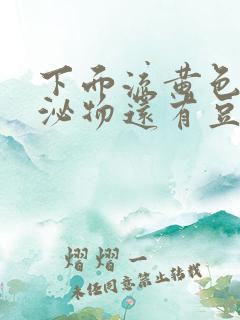 下而流黄色
泌物還有豆
熠熠一
未经同意禁止转载